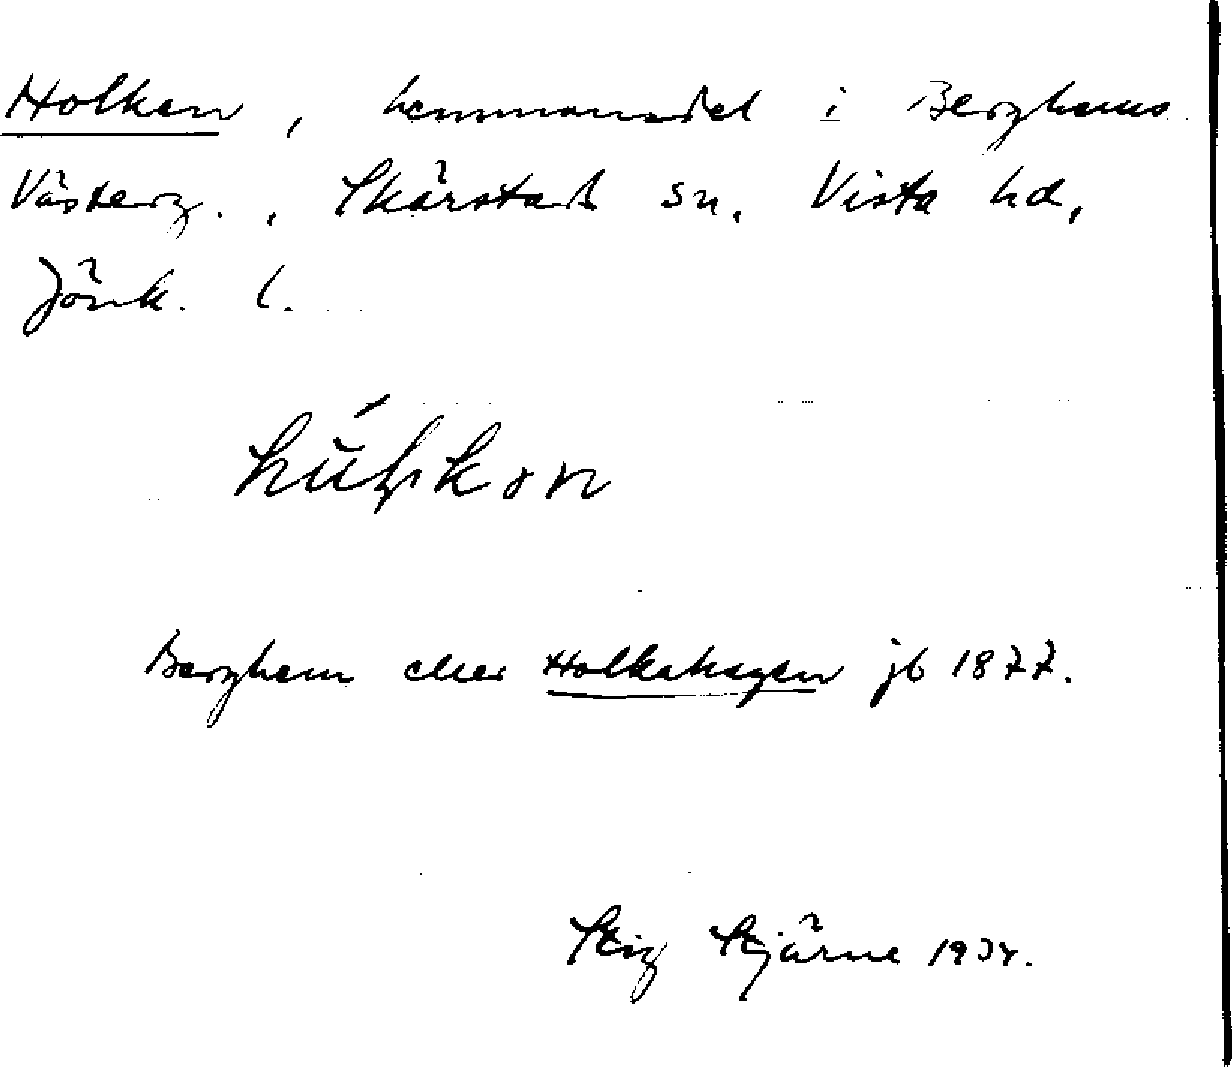 Holken, hemmansdel i Berghems
Västerg., Skärstad sn. Vista hd,
Jönk. l.
Berghem eller Holkahagen jb 1877.
Stig Stjärne 1934.